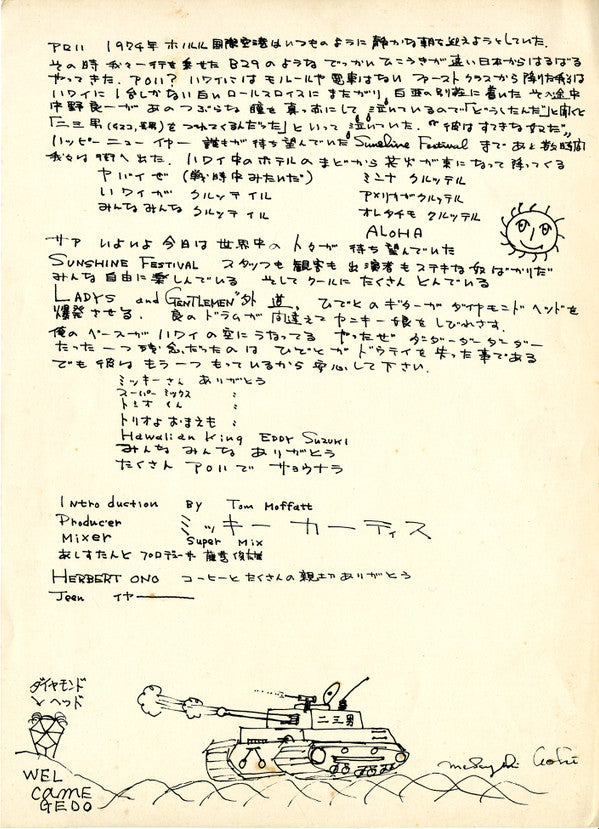 アロハ 1974年 ホノルル国際空港はいつものように静かな朝を迎えようとしていた.
その時 我々一行を乗せた B29のような でっかい ひこうきが 遠い日本からはるばる
やってきた. アロハ? ハワイには モノレールや電車はない ファーストクラスから降りた我々は
ハワイに1台しかない白いロールスロイスにまたがり 白亜の別荘に着いた その途中
中野良一が あのつぶらな 瞳を真っ赤にして 泣いているので「どうしたんだ」と聞くと
「二三男 をつれてくるんだった」といって 泣いていた. "彼はすてきな女だ"
ハッピーニューイヤー 誰もが待ち望んでいた Sunshine Festival まで あと数時間
我々は街へ出た. ハワイ中のホテルのまどから 花火が束になって降ってくる
ヤバイぜ (戦時中みたいだ) ミンナ クルッテル
ハワイガ クルッテイル アメリカガクルッテル
みんなみんな クルッテイル オレタチモ クルッテル
ALOHA
サァ いよいよ 今日は 世界中の 人々が 待ち望んでいた
SUNSHINE FESTIVAL スタッフも 観客も 出演者も ステキな奴ばかりだ
みんな 自由に楽しんでいる そして クールに たくさん とんでいる
LADYS and GENTLEMEN "外道, ひでとのギターが ダイヤモンドヘッドを
爆発させる. 良のドラムが 間違えて ヤンキー娘をしびれさす.
俺のベースが ハワイの空にうなってる やったぜ ダンダーダーダンダー
たった一つ残念だったのは ひでとが ドウテイを失った事である
でも 彼は もう一つ もっているから 安心して下さい.
ミッキーさん ありがとう
スーパーミックス 〃
トミオくん 〃
トリオよ おまえも 〃
Hawaiian King EDDY SUZUKI
みんな みんな ありがとう
たくさん アロハで サヨウナラ
Introduction BY Tom Moffatt
Producer ミッキーカーティス
Mixer Super Mix
あしすたんと プロデューサー
HERBERT ONO コーヒーと たくさんの親切ありがとう
Jeen イヤー
ダイヤモンド
ヘッド
二三男
WEL
CAME
GEDO